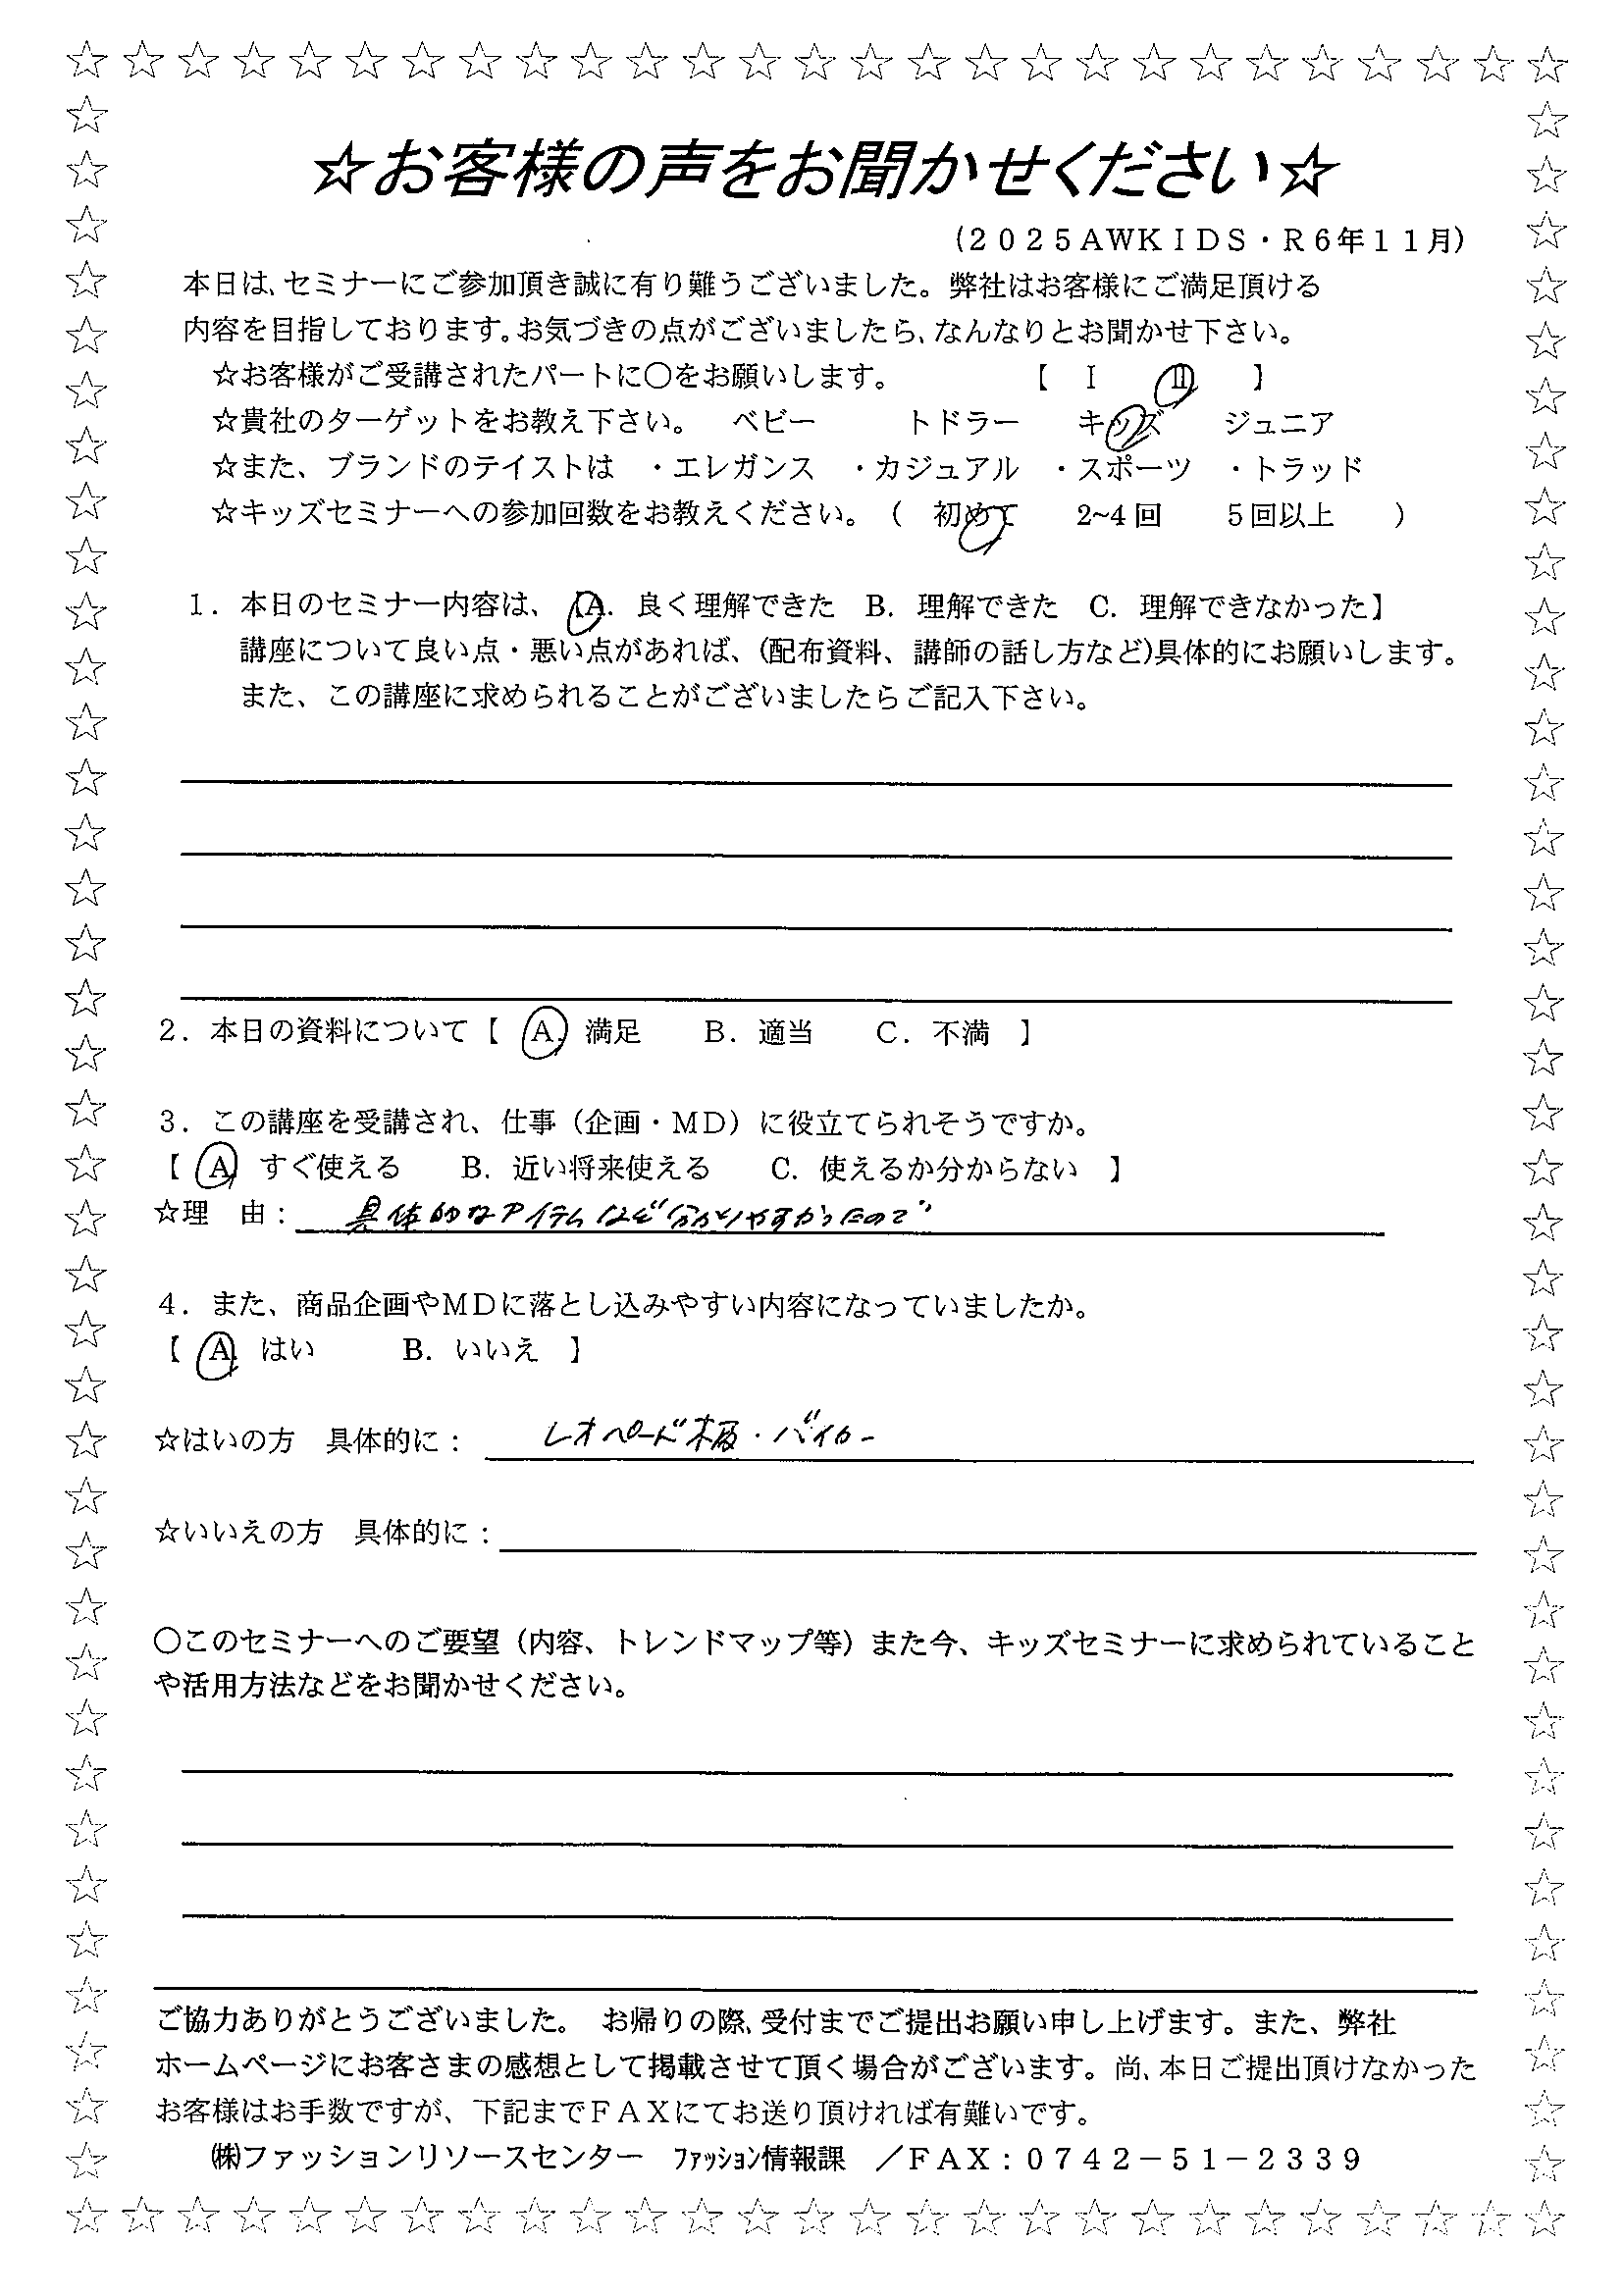 ☆お客様の声をお聞かせください☆
(2025AWKIDS・R6年11月)
本日は、セミナーにご参加頂き誠に有り難うございました。弊社はお客様にご満足頂ける
内容を目指しております。お気づきの点がございましたら、なんなりとお聞かせ下さい。
☆お客様がご受講されたパートに〇をお願いします。 【 Ⅰ Ⅱ 】
☆貴社のターゲットをお教え下さい。 ベビー トドラー キッズ ジュニア
☆また、ブランドのテイストは ・エレガンス ・カジュアル ・スポーツ ・トラッド
☆キッズセミナーへの参加回数をお教えください。（ 初めて 2~4回 5回以上 ）
1．本日のセミナー内容は、【A．良く理解できた B．理解できた C．理解できなかった】
講座について良い点・悪い点があれば、(配布資料、講師の話し方など)具体的にお願いします。
また、この講座に求められることがございましたらご記入下さい。
2．本日の資料について【 A．満足 B．適当 C．不満 】
3．この講座を受講され、仕事（企画・MD）に役立てられそうですか。
【 A．すぐ使える B．近い将来使える C．使えるか分からない 】
☆理 由： 具体的なアイテムなど分かりやすかったので
4．また、商品企画やMDに落とし込みやすい内容になっていましたか。
【 A．はい B．いいえ 】
☆はいの方 具体的に： レオパード柄・バイカー
☆いいえの方 具体的に：
〇このセミナーへのご要望（内容、トレンドマップ等）また今、キッズセミナーに求められていること
や活用方法などをお聞かせください。
ご協力ありがとうございました。 お帰りの際、受付までご提出お願い申し上げます。また、弊社
ホームページにお客さまの感想として掲載させて頂く場合がございます。尚、本日ご提出頂けなかった
お客様はお手数ですが、下記までＦＡＸにてお送り頂ければ有難いです。
㈱ファッションリソースセンター ﾌｧｯｼｮﾝ情報課 ／ＦＡＸ：０７４２－５１－２３３９